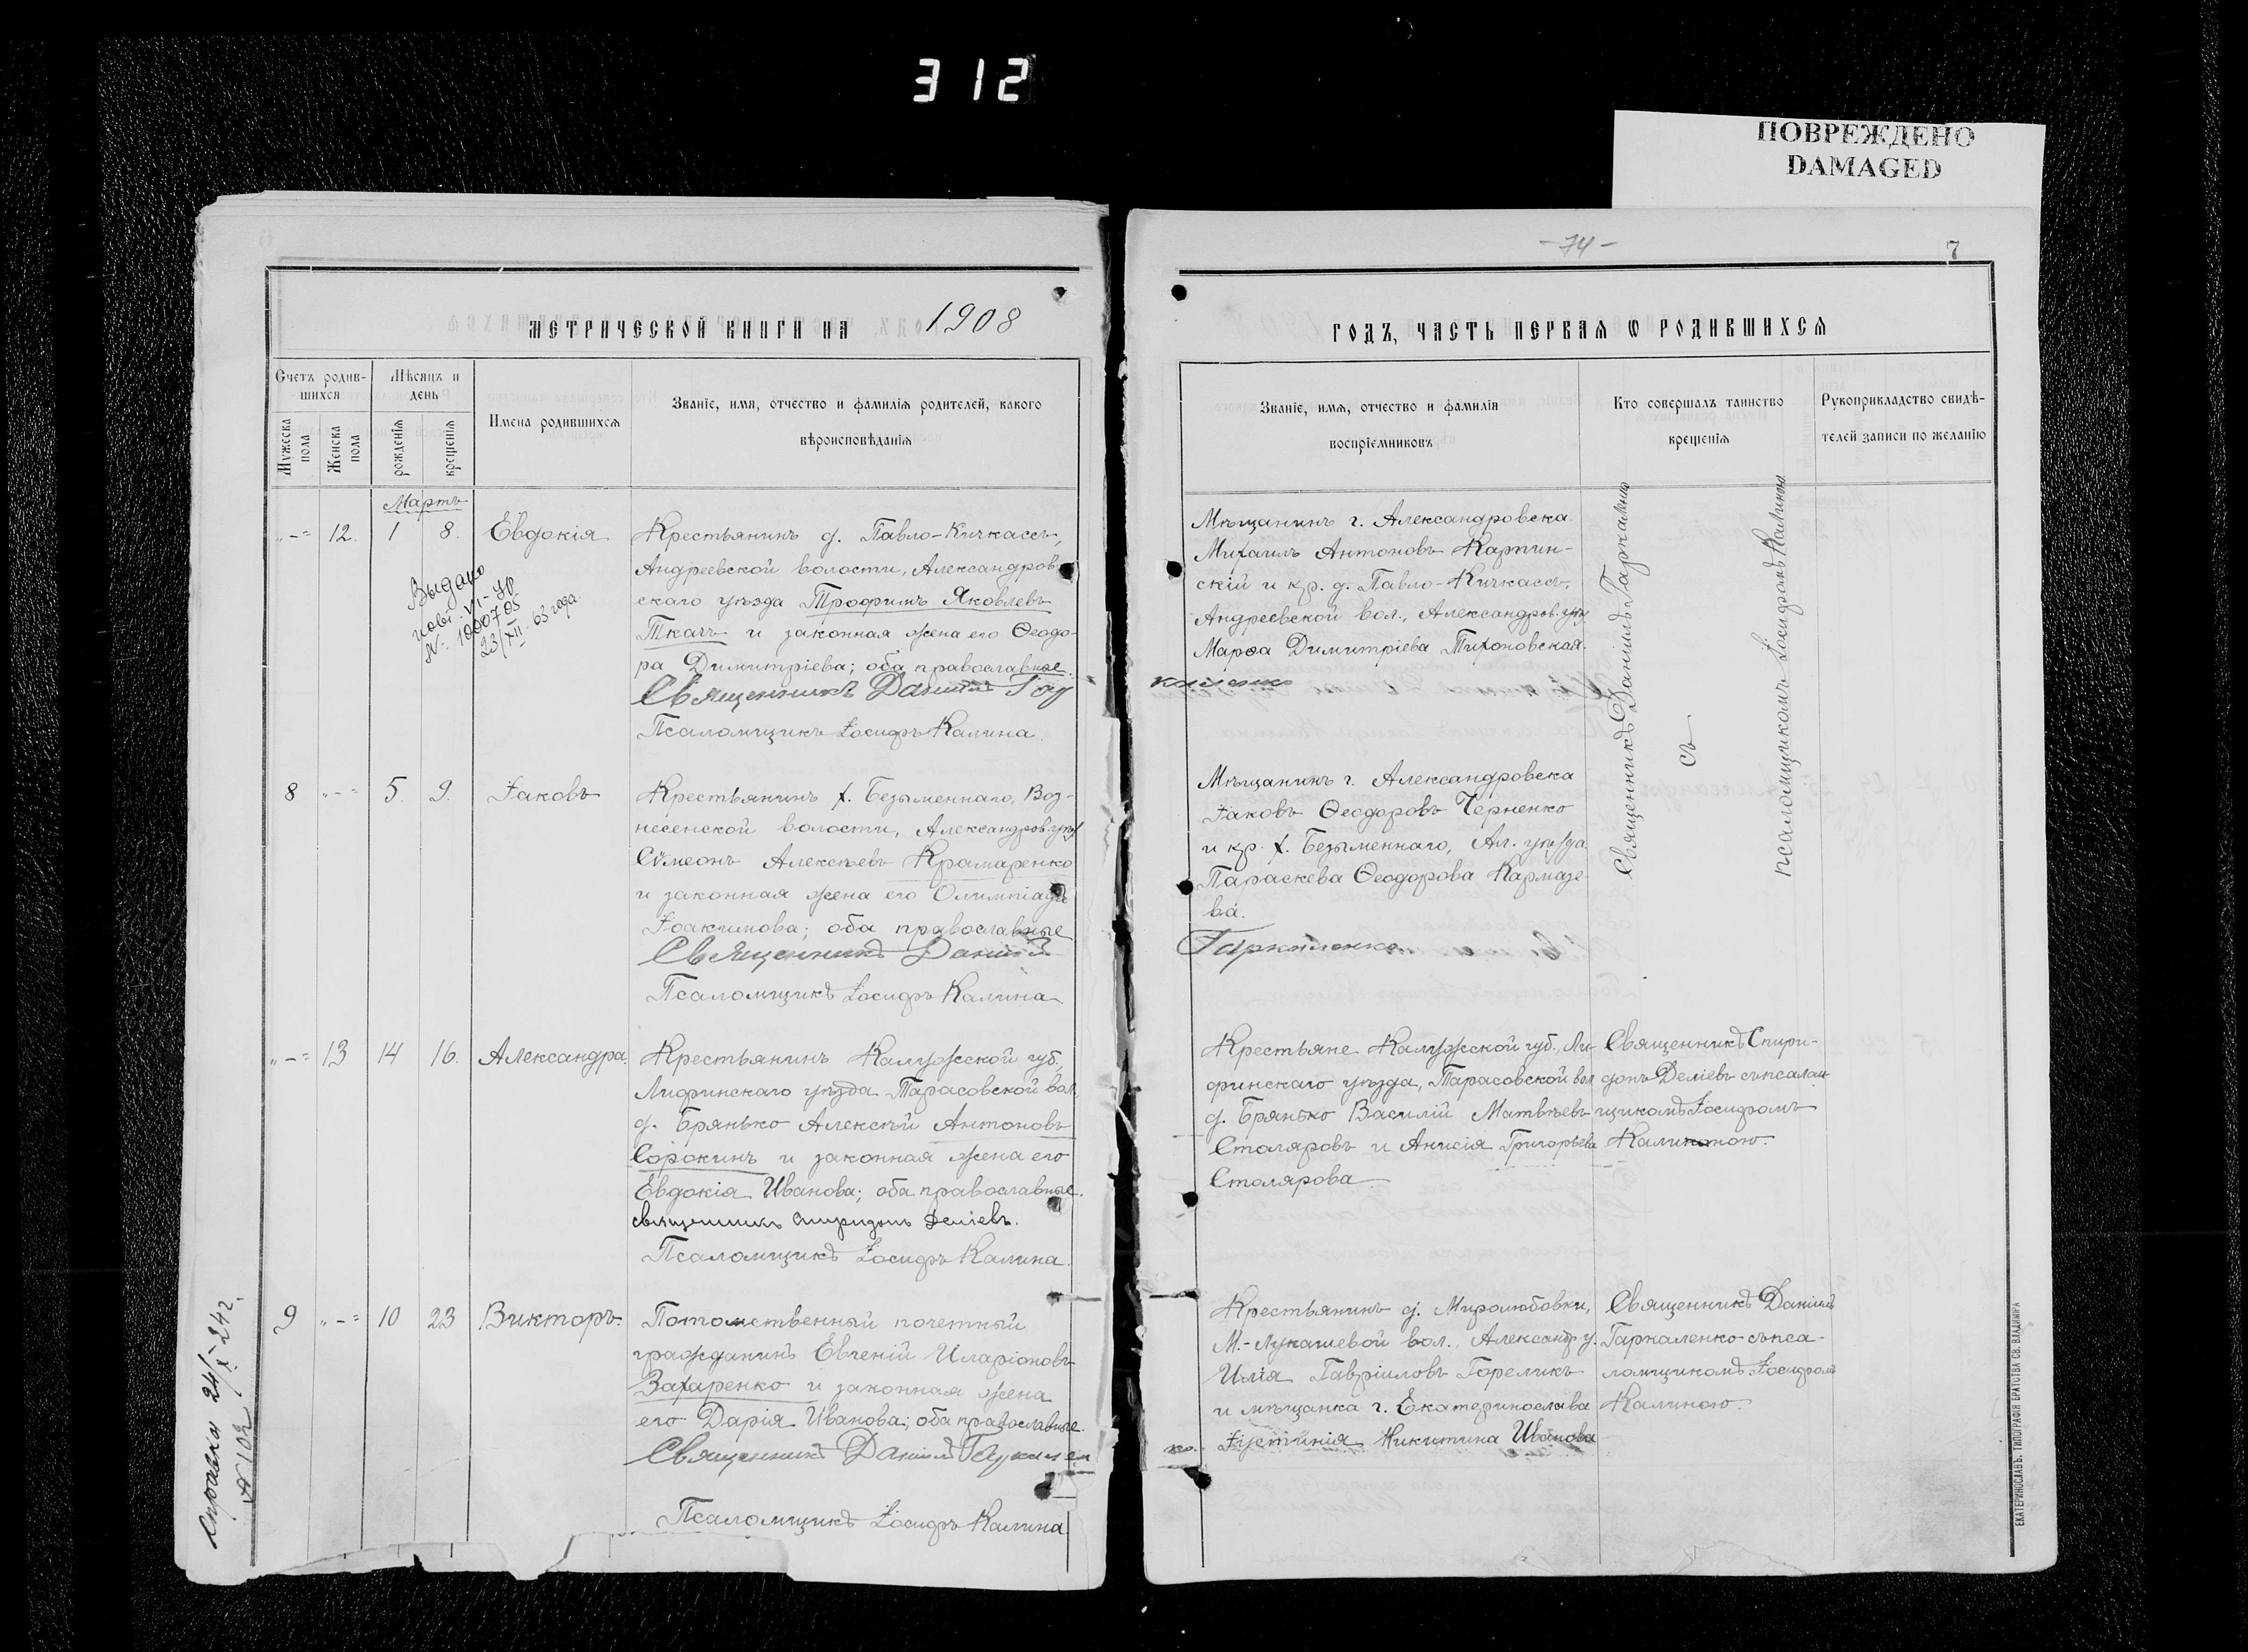 312
ПОВРЕЖДЕНО
DAMAGED
МЕТРИЧЕСКОЙ КНИГИ НА 1908
Счетъ родив-
шихся
Мѣсяцъ и
день
Мужеска
пола
Женска
пола
рожденія
крещенія
Имена родившихся
Званіе, имя, отчество и фамилія родителей, какого
вѣроисповѣданія
Мартъ
"-" 12. 1 8. Евдокія
Крестьянинъ д. Павло-Кичкассъ,
Андреевской волости, Александров-
скаго уѣзда Трофимъ Яковлевъ
Ткачъ и законная жена его Ѳеодо-
ра Димитріева; оба православные.
Священникъ Даніилъ Гар
Псаломщикъ Іосифъ Калина.
Выдано
нові VI-ЯР
№: 1000705
23/XII 63 года.
8 "-" 5. 9. Іаковъ
Крестьянинъ х. Безыменнаго, Воз-
несенской волости, Александров. уѣз.
Сѵмеонъ Алексѣевъ Крамаренко
и законная жена его Олимпіада
Іоакимова; оба православные
Священникъ Даніилъ
Псаломщикъ Іосифъ Калина
"-" 13 14 16. Александра.
Крестьянинъ Калужской губ.,
Лифинскаго уѣзда Тарасовской вол.,
д. Брянько Алексѣй Антоновъ
Сорокинъ и законная жена его
Евдокія Иванова; оба православные.
священникъ Спиридонъ Деліевъ.
Псаломщикъ Іосифъ Калина.
9 "-" 10 23 Викторъ.
Потомственный почетный
гражданинъ Евгеній Иларіоновъ
Захаренко и законная жена
его Дарія Иванова; оба православные.
Священникъ Даніилъ Гаркален
Псаломщикъ Іосифъ Калина.
Справка 24/X-242.
№ 102
-74-
7
ГОДЪ, ЧАСТЬ ПЕРВАЯ Ѡ РОДИВШИХСЯ
Званіе, имя, отчество и фамилія
воспріемниковъ
Кто совершалъ таинство
крещенія
Рукоприкладство свидѣ-
телей записи по желанію
Мѣщанинъ г. Александровска
Михаилъ Антоновъ Карпин-
скій и кр. д. Павло-Кичкассъ,
Андреевской вол., Александров. уѣз.
Марѳа Димитріева Тихоновская.
каленко
Мѣщанинъ г. Александровска
Іаковъ Ѳеодоровъ Черненко
и кр. х. Безыменнаго, Ал. уѣзда
Параскева Ѳеодорова Кармазе-
ва.
Гаркаленко
Священникъ Даніилъ Гаркаленко
съ
псаломщикомъ Іосифомъ Калиною
Крестьяне Калужской губ., Ли-
финскаго уѣзда, Тарасовской вол.
д. Брянько Василій Матвѣевъ
Столяровъ и Анисія Григорьева
Столярова
Священникъ Спири-
донъ Деліевъ съ псалом-
щикомъ Іосифомъ
Калиною.
Крестьянинъ д. Миролюбовки,
М.-Лукашевой вол., Александр. у.
Илія Гавріиловъ Гореликъ
и мѣщанка г. Екатеринослава
Іустинія Никитина Иванова
ко.
Священникъ Даніилъ
Гаркаленко съ пса-
ломщикомъ Іосифомъ
Калиною.
ЕКАТЕРИНОСЛАВЪ. ТИПОГРАФІЯ БРАТСТВА СВ. ВЛАДИМІРА